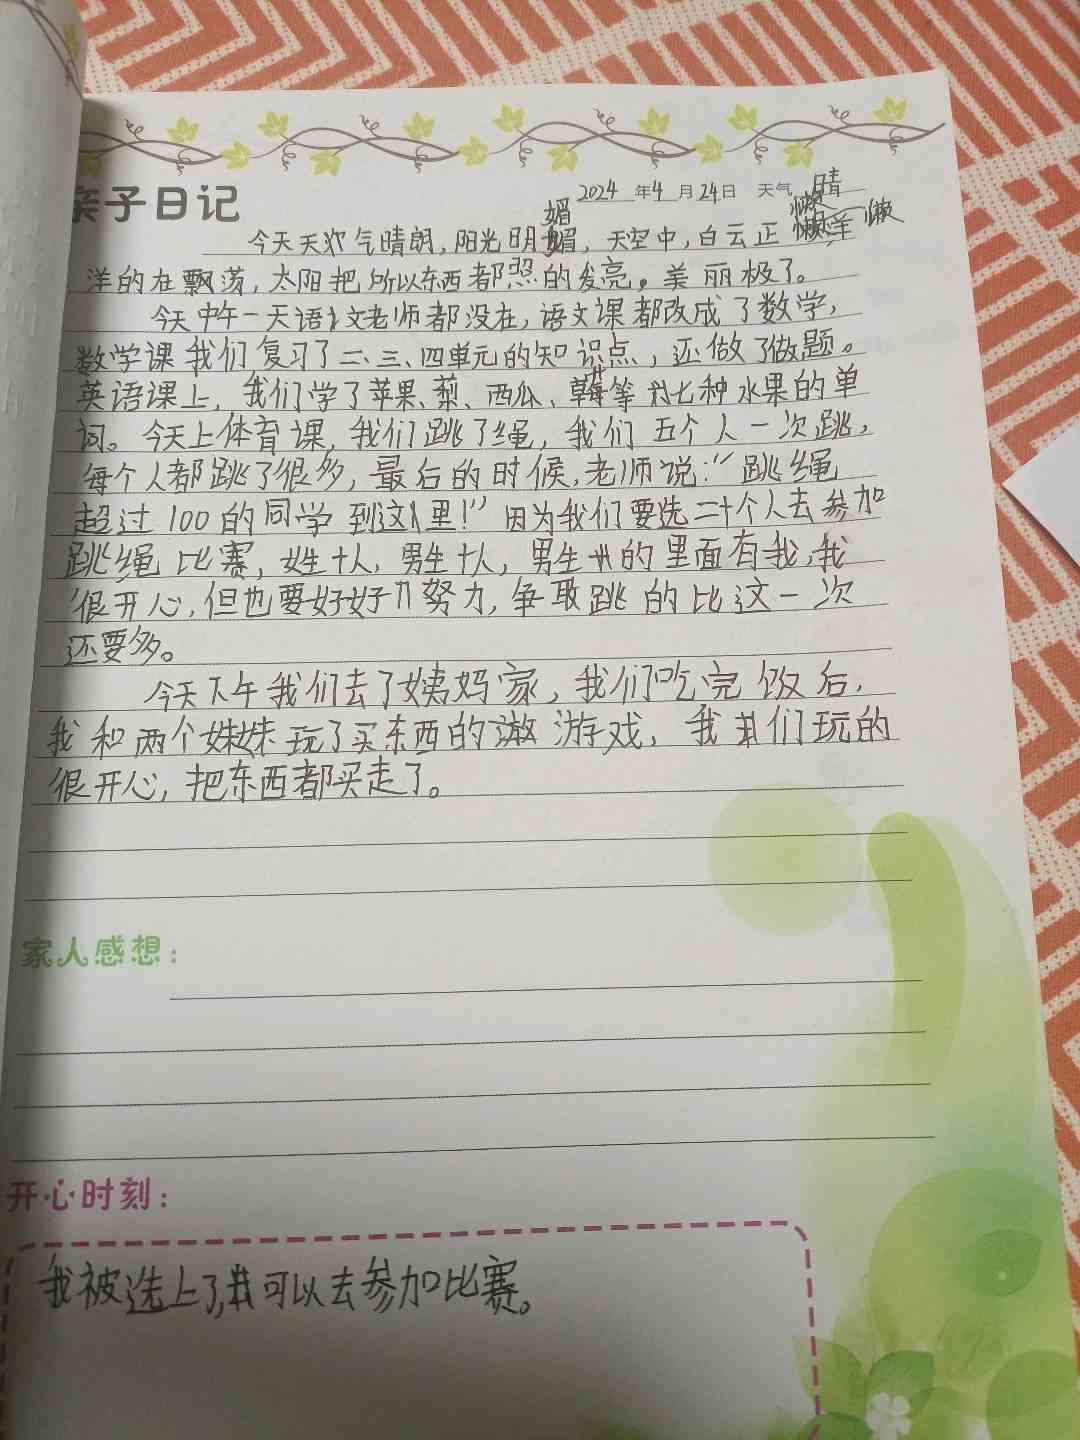 亲子日记
2024年4月24日 天气 晴
媚 懒
今天天气晴朗,阳光明媚,天空中,白云正懒洋 懒
洋的在飘荡,太阳把所以东西都照的发亮。美丽极了。
今天中午一天语文老师都没在,语文课都改成了数学,
数学课我们复习了二、三、四单元的知识点,还做了做题。
英语课上,我们学了苹果、梨、西瓜、草莓等七种水果的单
词。今天上体育课,我们跳了绳,我们五个人一次跳,
每个人都跳了很多,最后的时候,老师说:“跳绳
超过100的同学到这里!”因为我们要选二十个人去参加
跳绳比赛,女生十人,男生十人,男生的里面有我,我
很开心,但也要好好努力,争取跳的比这一次
还要多。
今天下午我们去了姨妈家,我们吃完饭后,
我和两个妹妹玩了买东西的游戏,我们玩的
很开心,把东西都买走了。
家人感想:
开心时刻:
我被选上了,可以去参加比赛。